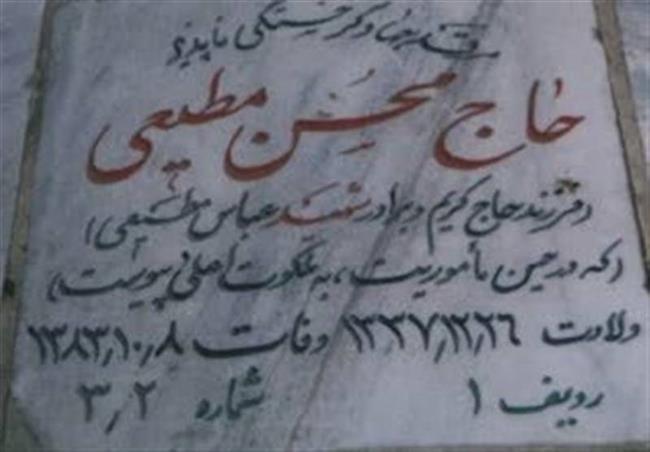 خستگی ناپذیر
حاج محسن مطیعی
(فرزند حاج کریم و برادر شهید عباس مطیعی)
(که در حین مأموریت، به ملکوت اعلی پیوست)
ولادت ۱۳۳۷٫۱۲٫۲۶ وفات ۱۳۸۳٫۱۰٫۸
ردیف ۱ شماره ۳٫۲